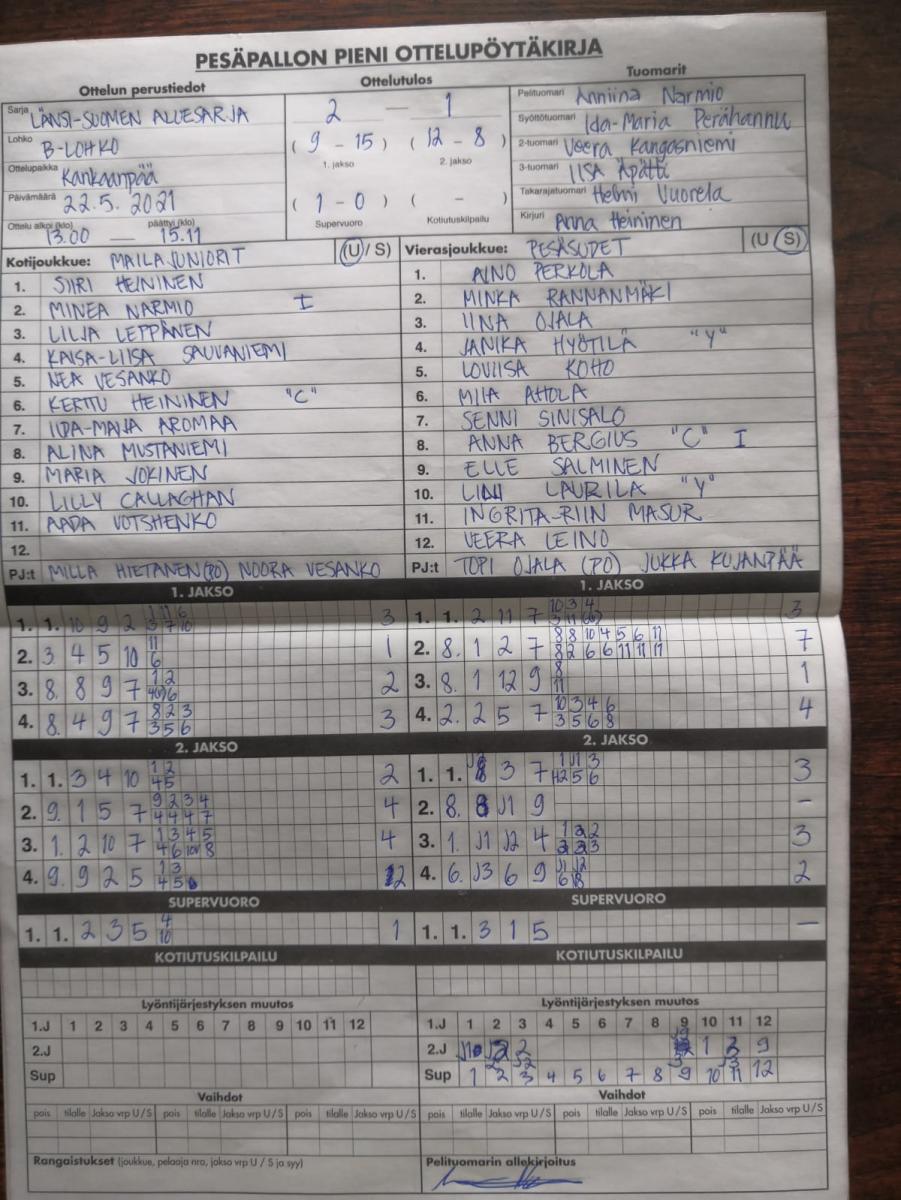 PESÄPALLON PIENI OTTELUPÖYTÄKIRJA
Ottelun perustiedot
Ottelutulos
Tuomarit
Sarja LÄNSI-SUOMEN ALUESARJA
Lohko B-LOHKO
Ottelupaikka Kankaanpää
Päivämäärä 22.5. 2021
Ottelu alkoi (klo) päättyi (klo)
13.00 — 15.11
2 — 1
( 9 - 15 ) ( 12 - 8 )
1. jakso 2. jakso
( 1 - 0 ) ( - )
Supervuoro Kotiutuskilpailu
Pelituomari Anniina Narmio
Syöttötuomari Ida-Maria Perähannu
2-tuomari Veera Kangasniemi
3-tuomari IISA Äpätti
Takarajatuomari Helmi Vuorela
Kirjuri Anna Heininen
Kotijoukkue: MAILAJUNIORIT (U / S)
1. SIIRI HEININEN
2. MINEA NARMIO I
3. LILJA LEPPÄNEN
4. KAISA-LIISA SAUVANIEMI
5. NEA VESANKO
6. KERTTU HEININEN "C"
7. IIDA-MAIJA AROMAA
8. ALINA MUSTANIEMI
9. MARIA JOKINEN
10. LILLY CALLAGHAN
11. AADA VOTSHENKO
12.
PJ:t MILLA HIETANEN (PO) NOORA VESANKO
Vierasjoukkue: PESÄSUDET (U / S)
1. AINO PERKOLA
2. MINKA RANNANMÄKI
3. IINA OJALA
4. JANIKA HYÖTILÄ "Y"
5. LOVIISA KOHO
6. MILA AHOLA
7. SENNI SINISALO
8. ANNA BERGIUS "C" I
9. ELLE SALMINEN
10. LINI LAURILA "Y"
11. INGRITA-RIIN MASUR
12. VEERA LEINO
PJ:t TOPI OJALA (PO) JUKKA KUJANPÄÄ
1. JAKSO
1. 1. 10 9 2 3
2. 3. 4 5 10 11 6 1
3. 8. 8 9 7 2
4. 8. 4 9 7 8 2 3 3 5 6 3
2. JAKSO
1. 1. 3 4 10 1 2 4 5 2
2. 9. 1 5 7 9 2 3 4 4 4 4 7 4
3. 1. 2 10 7 1 3 4 5 4
4. 9. 9 2 5 1 3 2
SUPERVUORO
1. 1. 2 3 5 4 10 1
KOTIUTUSKILPAILU
Lyöntijärjestyksen muutos
1.J 1 2 3 4 5 6 7 8 9 10 11 12
2.J
Sup
Vaihdot
pois tilalle Jakso vrp U / S pois tilalle Jakso vrp U / S pois tilalle Jakso vrp U / S
Rangaistukset (joukkue, pelaaja nro, jakso vrp U / S ja syy)
1. JAKSO
1. 1. 2 11 7 3
2. 8. 1 2 7 8 8 10 4 5 6 11 8 2 6 6 11 11 11 7
3. 8. 1 12 9 8 11 1
4. 2. 2 5 7 10 3 4 6 3 5 6 8 4
2. JAKSO
1. 1. 3 7 3
2. 8. 8 J1 9 -
3. 1. J1 J2 4 3
4. 6. J3 6 9 J1 J2 2
SUPERVUORO
1. 1. 3 1 5 —
KOTIUTUSKILPAILU
Lyöntijärjestyksen muutos
1.J 1 2 3 4 5 6 7 8 9 10 11 12
2.J 2 1 9
Sup 1 2 3 4 5 6 7 8 9 10 11 12
Vaihdot
pois tilalle Jakso vrp U / S pois tilalle Jakso vrp U / S pois tilalle Jakso vrp U / S
Pelituomarin allekirjoitus